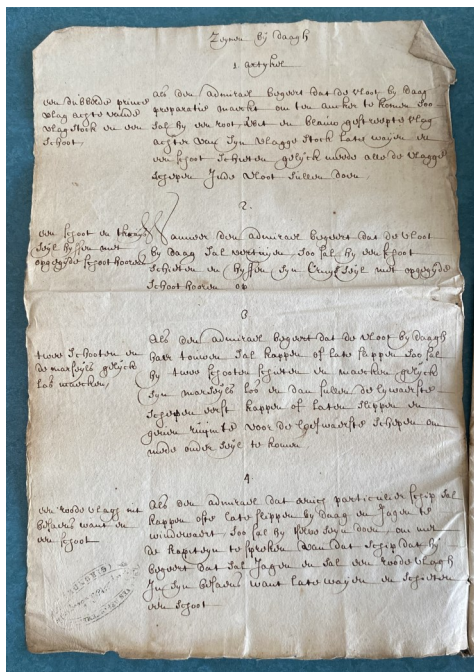 Zeynen bij daagh
1 artykel
een dubbelde prince
vlag achter vande
vlagstock en een
schoot
als den admirael begeert dat de vloot by daag
preparatie maeckt om ten ancker te komen soo
sal by een root witt en blauw gestreepte vlag
achter van syn vlagge stock late wayen en
een schoot schieten gelyck mede alle de vlagge
schepen Inde vloot sullen doen
2
een schoot en
seyl hyssen met
opgegyde schoothooren
Wanneer den admirael begeert dat de vloot
by daag sal vertuyen soo sal hy een schoot
schieten en hyssen syn Cruys seyl met opgegyde
schoothooren op
3
twee schooten en
de marseyls gelyck
los maecken
Als den admirael begeert dat de vloot by daagh
haer touwen sal kappen of late slippen soo sal
hy twee schooten schieten en maecken gelyck
syn marseyls los en dan sullen de lywaerste
schepen eerst kappen of laten slippen en
geven ruymte voor de loefwaerste schepen om
mede onder seyl te komen
4
een roode vlagh int
besaens want en
een schoot
Als den admirael dat eenich particulier schip sal
kappen ofte late slippen by daag en Jagen te
windewaert, soo sal hy seyn doen om met
de kapiteyn te spreken van dat schip dat hy
begeert dat sal Jagen en sal een roode vlagh
In syn besaens want late wayen en schieten
een schoot